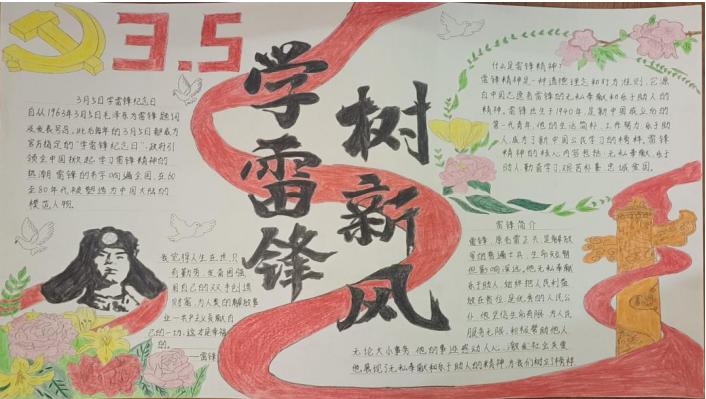 3.5
学雷锋
树新风
3月5日学雷锋纪念日
自从1963年3月5日毛泽东为雷锋题词
及发表号召,此后每年的3月5日都成为
官方指定的“学雷锋纪念日”,政府引
领全中国掀起学习雷锋精神的
热潮,雷锋的名字响遍全国,在60
至80年代被塑造为中国大陆的
模范人物。
我觉得人生在世,只
有勤劳,发奋图强
用自己的双手创造
财富,为人类的解放事业
—共产主义贡献自
己的一切,这才是幸福
的。
——雷锋
什么是雷锋精神?
雷锋精神是一种道德理念和行为准则,它源
自中国志愿者雷锋的无私奉献和乐于助人的
精神。雷锋出生于1940年,是新中国成立后的
第一代青年,他的生活简朴,工作努力,乐于助
人,成为了新中国公民学习的榜样,雷锋
精神的核心内容包括:无私奉献,乐
于助人,勤奋学习,艰苦朴素,忠诚爱国。
雷锋简介
雷锋,原名雷正兴,是解放
军的普通士兵,生命短暂
但影响深远,他无私奉献
乐于助人,始终把人民利益
放在首位,是优秀的人民公
仆,他坚信生命有限,为人民
服务无限,积极帮助他人
无论大小事务,他的事迹感动人心,激发社会关爱
他展现了无私奉献和乐于助人的精神,为我们树立了榜样